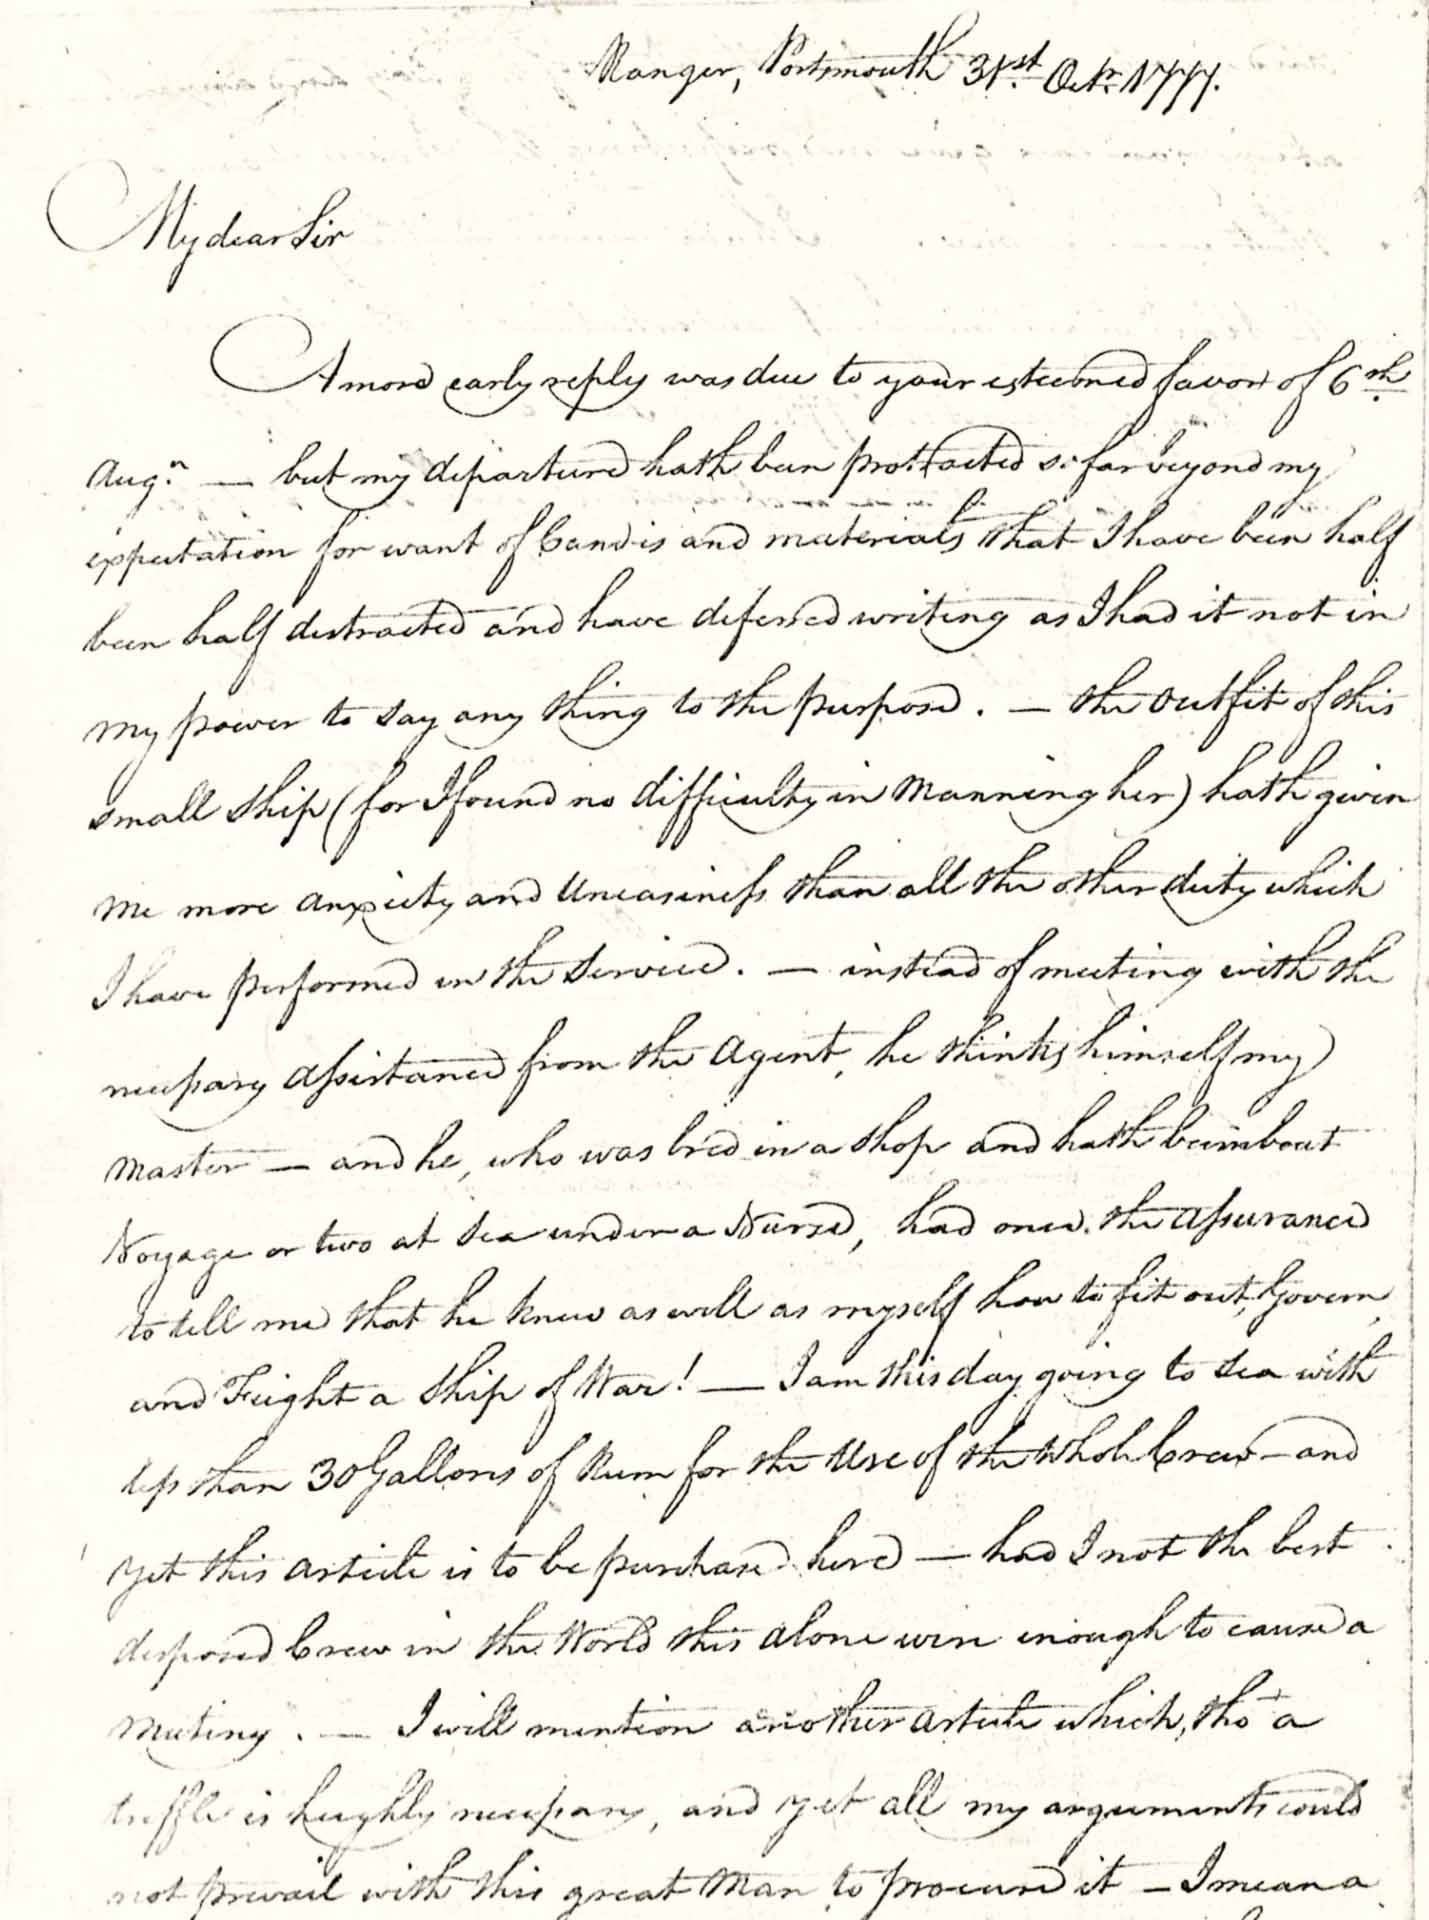 Ranger, Portsmouth 31st. Octr. 1777.
My dear Sir
A more early reply was due to your esteemed favor of 6th.
Augt. — but my departure hath been protracted so far beyond my
expectation for want of Hands and materials that I have been half
been half distracted and have deferred writing as I had it not in
my power to say any thing to the purpose. — the outfit of this
small Ship (for I found no difficulty in Manning her) hath given
me more anxiety and Uneasiness than all the other duty which
I have performed in the Service. — instead of meeting with the
necessary assistance from the Agent, he thinks himself my
master — and he, who was bred in a shop and hath been about
Voyage or two at Sea under a Nurse, had once the assurance
to tell me that he knew as well as myself how to fit out, Govern,
and Feight a Ship of War! — I am this day going to Sea with
less than 30 Gallons of Rum for the Use of the whole Crew — and
yet this article is to be purchased here — had I not the best
disposed Crew in the World this alone were enough to cause a
Mutiny. — I will mention another article which, tho' a
triffle is heighly necessary, and yet all my arguments could
not prevail with this great Man to procure it — I mean a